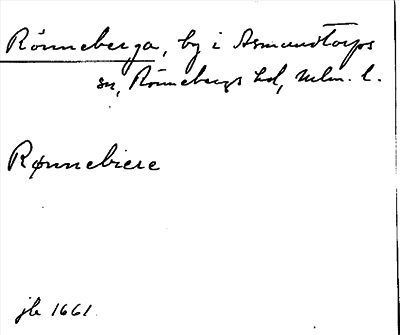 Rönneberga, by i Asmundtorps
sn, Rönnebergs hd, Mlm. l.
Rønnebiere
jb 1661.